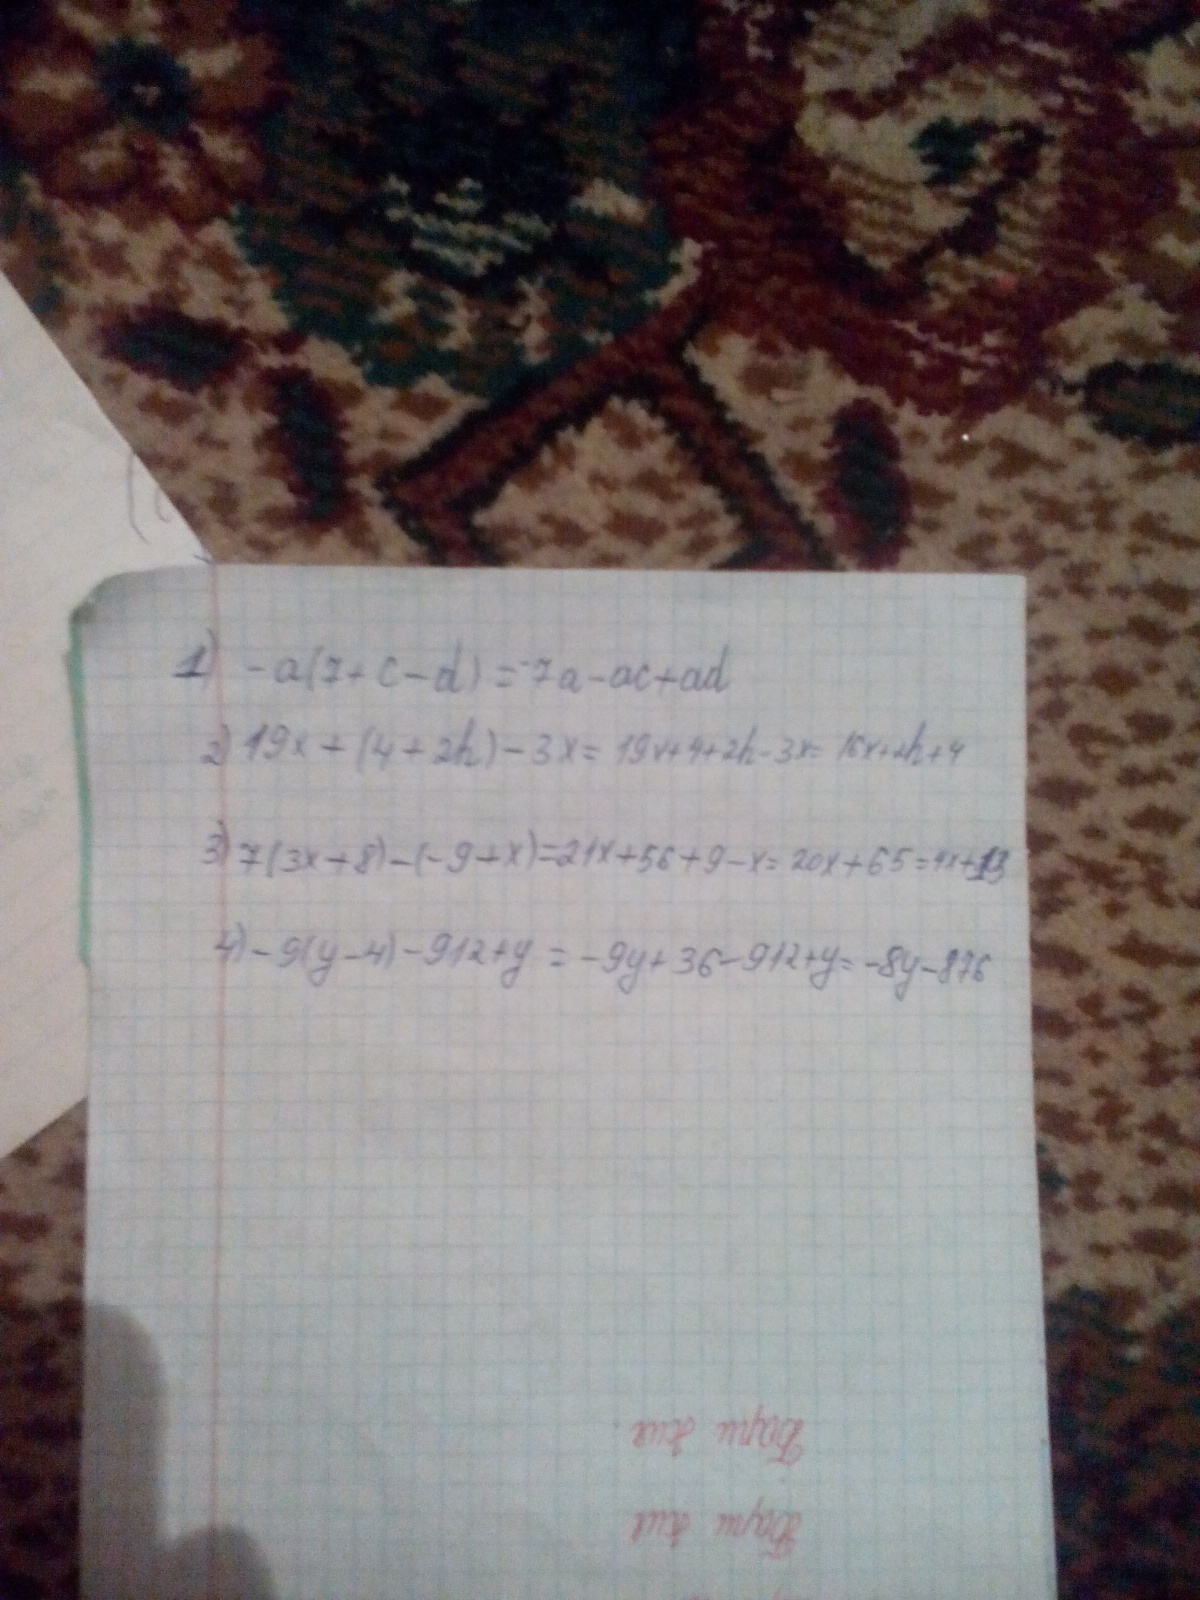 1) -a(7+c-d)=-7a-ac+ad
2) 19x+(4+2h)-3x=19x+4+2h-3x=16x+2h+4
3) 7(3x+8)-(-9+x)=21x+56+9-x=20x+65=4x+13
4) -9(y-4)-912+y=-9y+36-912+y=-8y-876